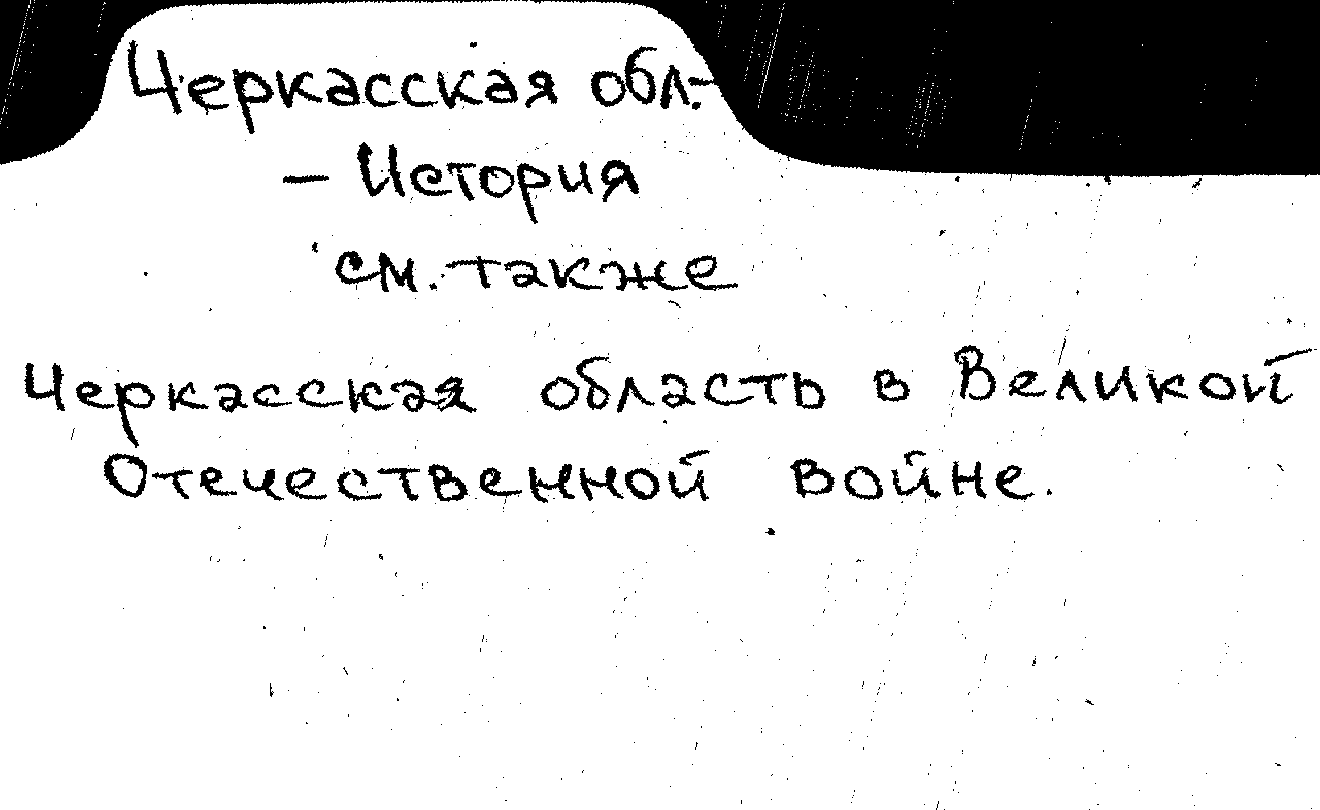 Черкасская обл.-
- История
см. также
Черкасская область в Великой
Отечественной войне.